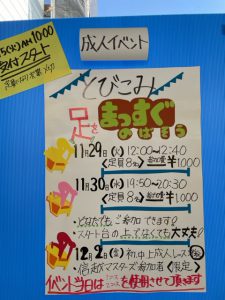 5(火)AM10:00
受付スタート
成人イベント
とびこみ
足を
まっすぐ
のばそう
11月29日(火) 12:00〜12:40
<定員8名> 参加費¥1,000
11月30日(水) 19:50〜20:30
<定員8名> 参加費¥1,000
・どなたでもご参加できます!
・スタート台の上でなくても大丈夫!
12月2日(金) 初.中.上成人レース
マスターズ参加者<限定>
イベント当日は を使用させて頂きます!